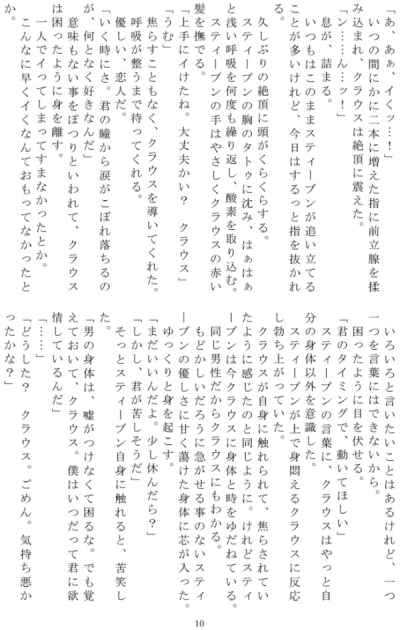 「あ、あぁ、イくッ…!」
　いつの間にかに二本に増えた指に前立腺を揉
み込まれ、クラウスは絶頂に震えた。
「ン……んッ…!」
　息が、詰まる。
　いつもはこのままスティーブンが追い立てる
ことが多いけれど、今日はするっと指を抜かれ
る。
　久しぶりの絶頂に頭がくらくらする。
　スティーブンの胸のタトゥに沈み、はぁはぁ
と浅い呼吸を何度も繰り返し、酸素を取り込む。
　スティーブンの手はやさしくクラウスの赤い
髪を撫でる。
「上手にイけたね。大丈夫かい？　クラウス」
「うむ」
　焦らすこともなく、クラウスを導いてくれた。
呼吸が整うまで待ってくれる。
　優しい、恋人だ。
「いく時にさ。君の瞳から涙がこぼれ落ちるの
が、何となく好きなんだ」
　意味もない事をぽつりといわれて、クラウス
は困ったように身を離す。
　一人でイってしまってすまなかったとか。
　こんなに早くイくなんておもってなかったと
か。
　いろいろと言いたいことはあるけれど、一つ
一つを言葉にはできないから。
　困ったように目を伏せる。
「君のタイミングで、動いてほしい」
　スティーブンの言葉に、クラウスはやっと自
分の身体以外を意識した。
　スティーブンが上で身悶えるクラウスに反応
し勃ち上がっていた。
　クラウスが自身に触れられて、焦らされてい
たように感じたのと同じように。けれどスティ
ーブンは今クラウスに身体と時をゆだねている。
　同じ男性だからクラウスにもわかる。
　もどかしいだろうに急がせる事のないスティ
ーブンの優しさに甘く蕩けた身体に芯が入った。
　ゆっくりと身を起こす。
「まだいいんだよ。少し休んだら？」
「しかし、君が苦しそうだ」
　そっとスティーブン自身に触れると、苦笑し
た。
「男の身体は、嘘がつけなくて困るな。でも覚
えておいて、クラウス。僕はいつだって君に欲
情しているんだ」
「……」
「どうした？　クラウス。ごめん。気持ち悪か
ったかな？」
10